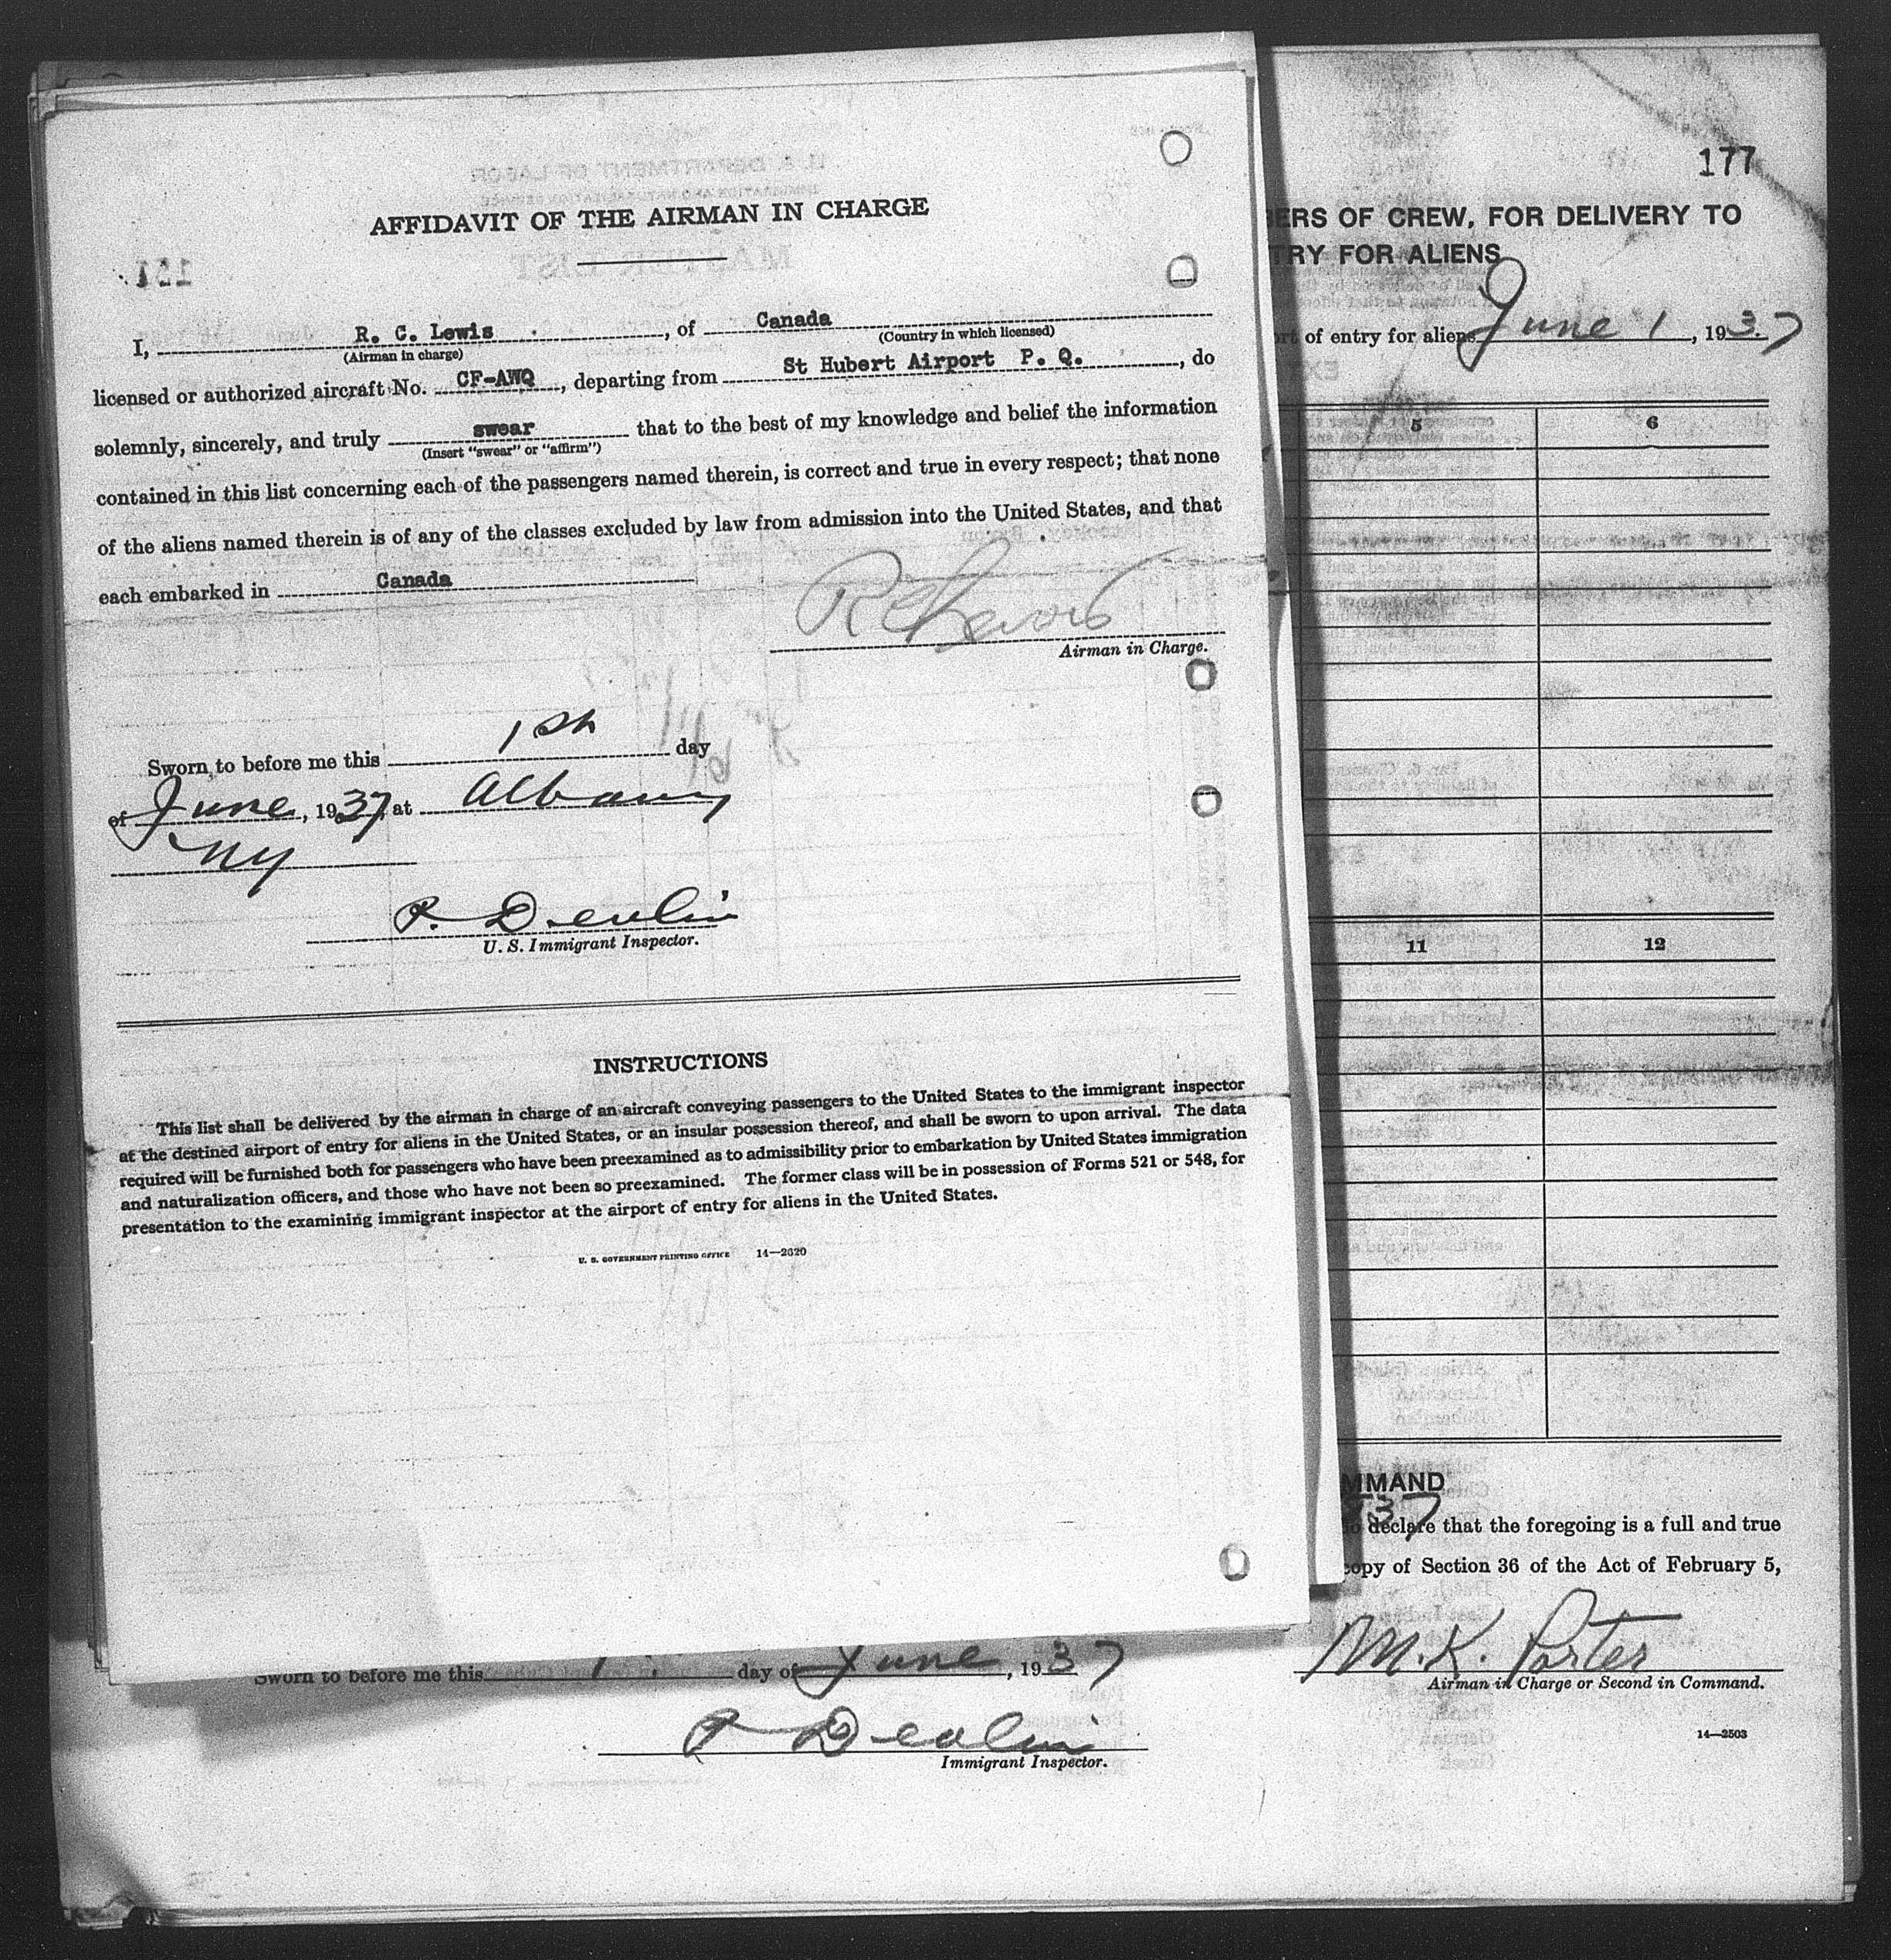 AFFIDAVIT OF THE AIRMAN IN CHARGE
I, R. C. Lewis, of Canada
(Airman in charge) (Country in which licensed)
licensed or authorized aircraft No. CF-AWQ, departing from St Hubert Airport P. Q., do
solemnly, sincerely, and truly swear that to the best of my knowledge and belief the information
(Insert "swear" or "affirm")
contained in this list concerning each of the passengers named therein, is correct and true in every respect; that none
of the aliens named therein is of any of the classes excluded by law from admission into the United States, and that
each embarked in Canada
R C Lewis
Airman in Charge.
Sworn to before me this 1st day
of June, 1937, at Albany
NY
P. Devlin
U. S. Immigrant Inspector.
INSTRUCTIONS
This list shall be delivered by the airman in charge of an aircraft conveying passengers to the United States to the immigrant inspector
at the destined airport of entry for aliens in the United States, or an insular possession thereof, and shall be sworn to upon arrival. The data
required will be furnished both for passengers who have been preexamined as to admissibility prior to embarkation by United States immigration
and naturalization officers, and those who have not been so preexamined. The former class will be in possession of Forms 521 or 548, for
presentation to the examining immigrant inspector at the airport of entry for aliens in the United States.
U. S. GOVERNMENT PRINTING OFFICE 14—2620
177
ERS OF CREW, FOR DELIVERY TO
TRY FOR ALIENS
ort of entry for aliens June 1, 1937
5 6
11 12
MMAND
37
do declare that the foregoing is a full and true
copy of Section 36 of the Act of February 5,
M. K. Porter
Airman in Charge or Second in Command.
Sworn to before me this 1 day of June, 1937
P Devlin
Immigrant Inspector.
14—2503